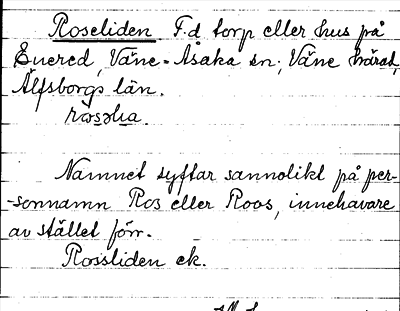 Roseliden F.d torp eller hus på
Enered, Väne-Åsaka sn; Väne härad,
Älfsborgs län.
Namnet syftar sannolikt på per-
-sonnamn Ros eller Roos, innehavare
av stället förr.
Rossliden ek.